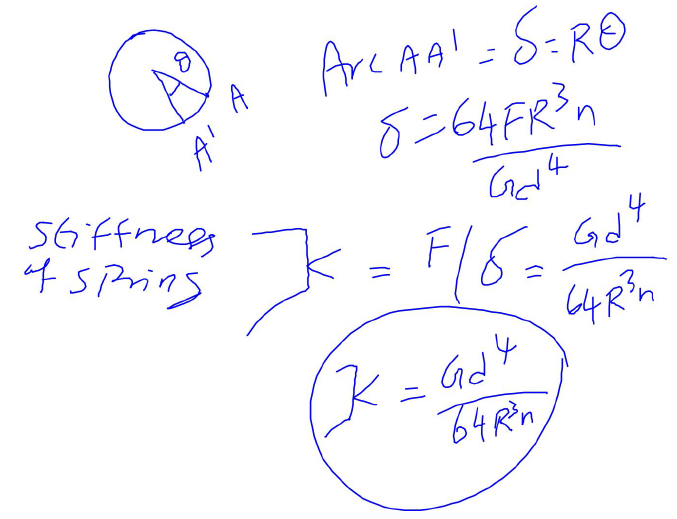 θ
A
A'
Arc AA' = δ = Rθ
δ = 64FR³n / Gd⁴
Stiffness
of spring
K = F/δ = Gd⁴ / 64R³n
K = Gd⁴ / 64R³n